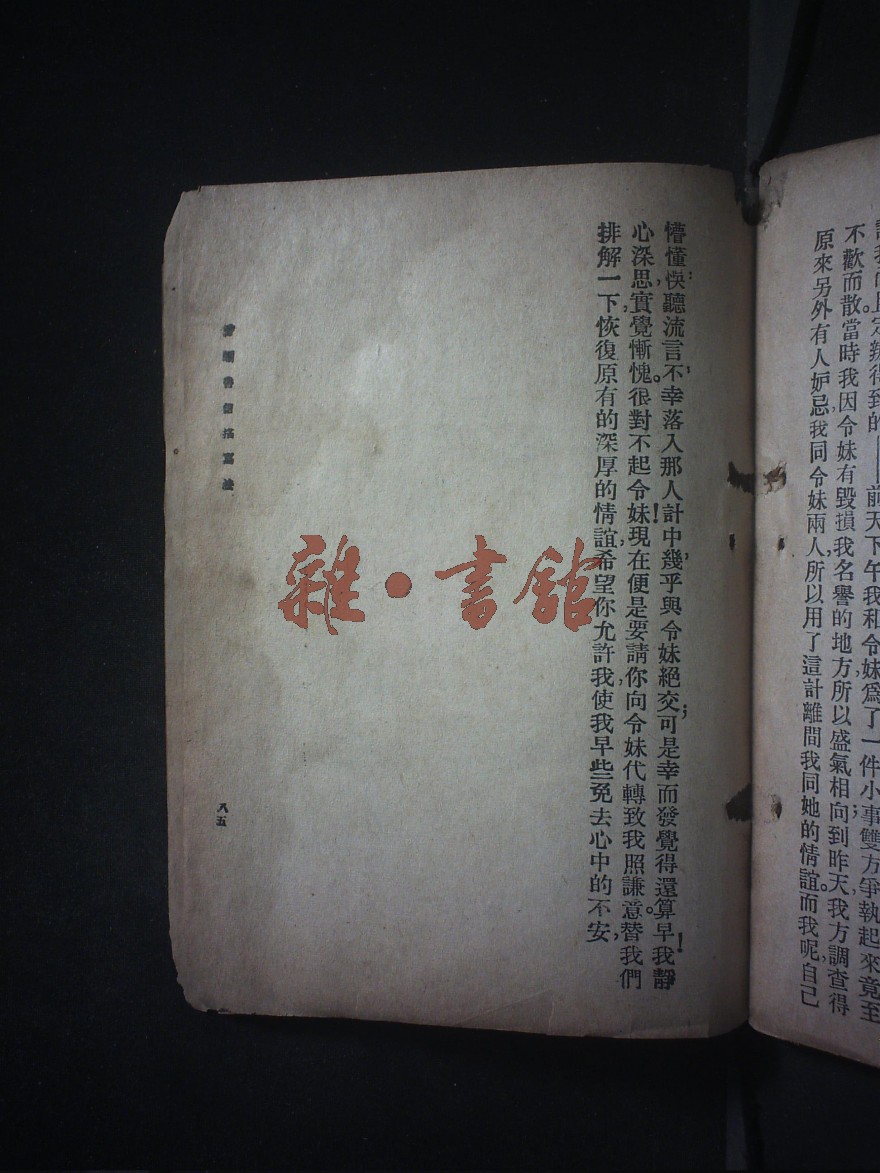 得到的前天下午我和令妹爲了一件小事;雙方爭執起來,竟至
不歡而散。當時我因令妹有毀損我名譽的地方所以盛氣相向到昨天我方調查得
原來另外有人妒忌我同令妹兩人,所以用了這計離間我同她的情誼。而我呢,自己
懵懂,快聽流言,不幸落入那人計中,幾乎與令妹絕交;可是幸而發覺得還算早!我靜
心深思,實覺慚愧。很對不起令妹!現在便是要請你向令妹代轉致我照謙意。替我們
排解一下,恢復原有的深厚的情誼,希望你允許我,使我早些免去心中的不安,
書信描寫法
八五
雜·書館